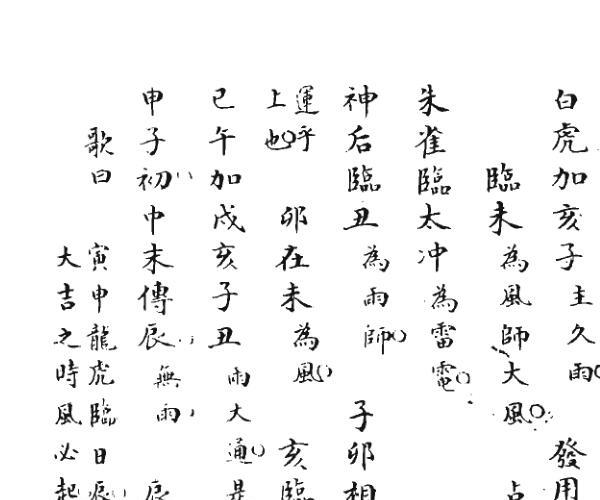 白虎加亥子主久雨 發用
臨未為風師大風
朱雀臨太冲為雷電
神后臨丑為雨師 子卯相
運乎
上也 卯在未為風 亥臨
巳午加戌亥子丑雨大通是
申子初中末傳辰無雨 辰
歌曰 寅申龍虎臨日辰
大吉之時風必起